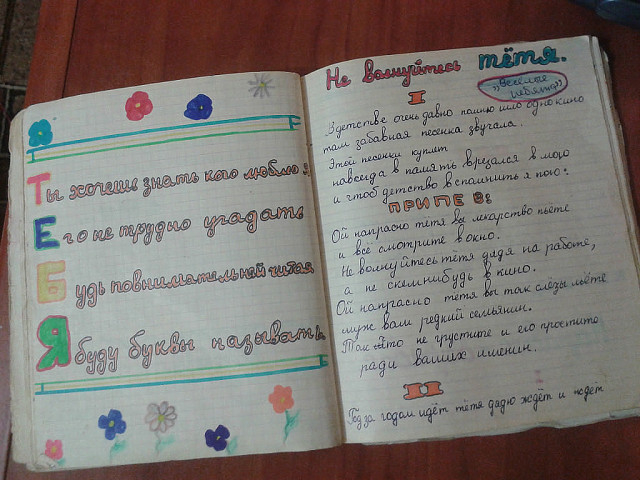 Ты хочешь знать кого люблю я
Его не трудно угадать
Будь повнимательней читая
Я буду буквы называть.
Не волнуйтесь тётя.
"Весёлые ребята"
I
В детстве очень давно помню шло одно кино
там забавная песенка звучала.
Этой песенки куплет
навсегда в память врезался в мою
и чтоб детство вспомнить я пою:
ПРИПЕВ:
Ой напрасно тётя вы лекарство пьёте
и всё смотрите в окно.
Не волнуйтесь тётя дядя на работе,
а не с кем нибудь в кино.
Ой напрасно тётя вы так слёзы льёте
муж вам редкий семьянин.
Так что не грустите и его простите
ради ваших именин.
II
Год за годом идёт тётя дядю ждёт и ждёт